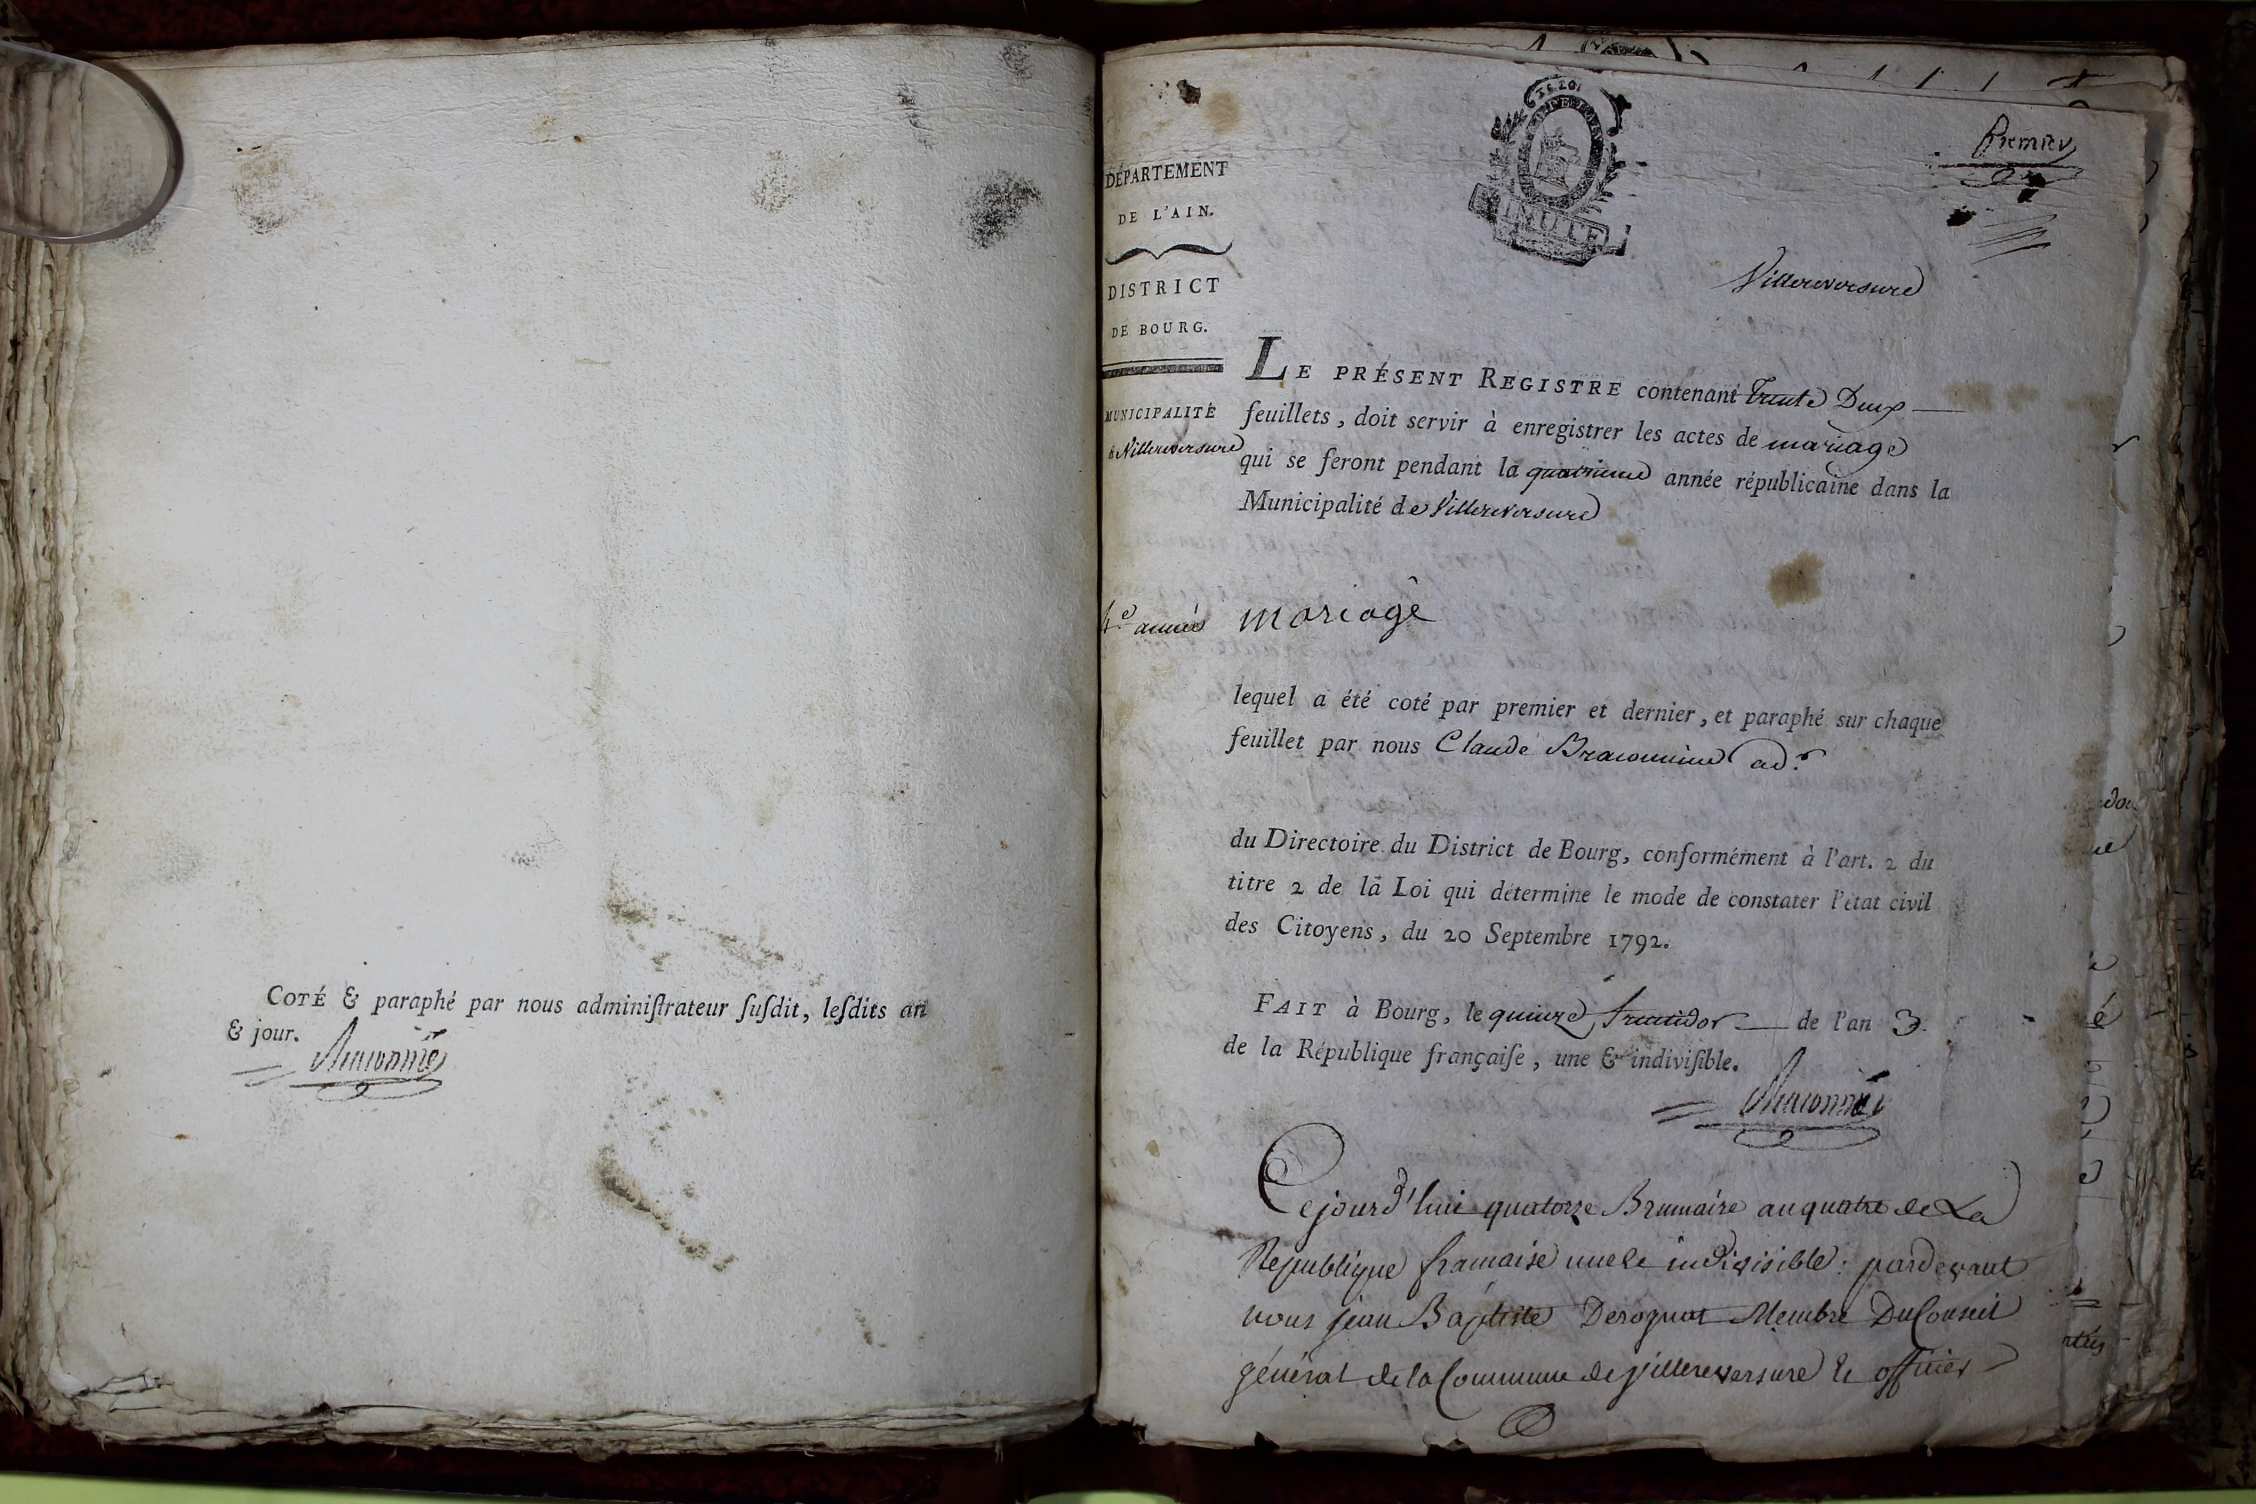 COTÉ & paraphé par nous adminiſtrateur ſuſdit, leſdits an
& jour.
Braconnier
Premier
DÉPARTEMENT
DE L'AIN.
DISTRICT
DE BOURG.
MUNICIPALITÉ
de Villereversure
Villereversure
LE PRÉSENT REGISTRE contenant Trente Deux
feuillets, doit servir à enregistrer les actes de mariage
qui se feront pendant la quatrieme année républicaine dans la
Municipalité de Villereversure
4e année mariage
lequel a été coté par premier et dernier, et paraphé sur chaque
feuillet par nous Claude Braconnier adr
du Directoire du District de Bourg, conformément à l'art. 2 du
titre 2 de la Loi qui détermine le mode de constater l'état civil
des Citoyens, du 20 Septembre 1792.
FAIT à Bourg, le quinze fructidor de l'an 3
de la République françaiſe, une & indiviſible.
Braconnier
Cejourd'hui quatorze Brumaire an quatre de La
Republique francaise une & indivisible: pardevant
nous jean Baptiste Derognat Membre Du Conseil
général de la Commune de villereversure & officier